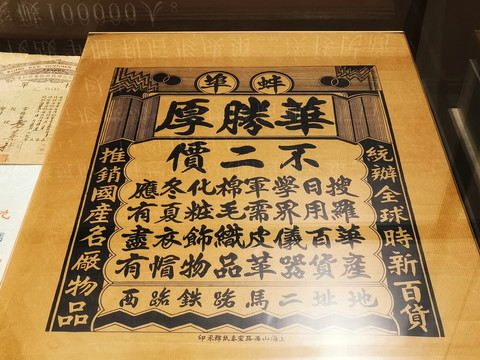 100000人。
蚌埠
華勝厚
不二價
統辦全球時新百貨
搜羅華產
日用百貨
學界儀器
軍需皮革
棉毛織品
化粧飾物
冬夏衣帽
應有盡有
推銷國產名廠物品
地址二馬路鐵路西